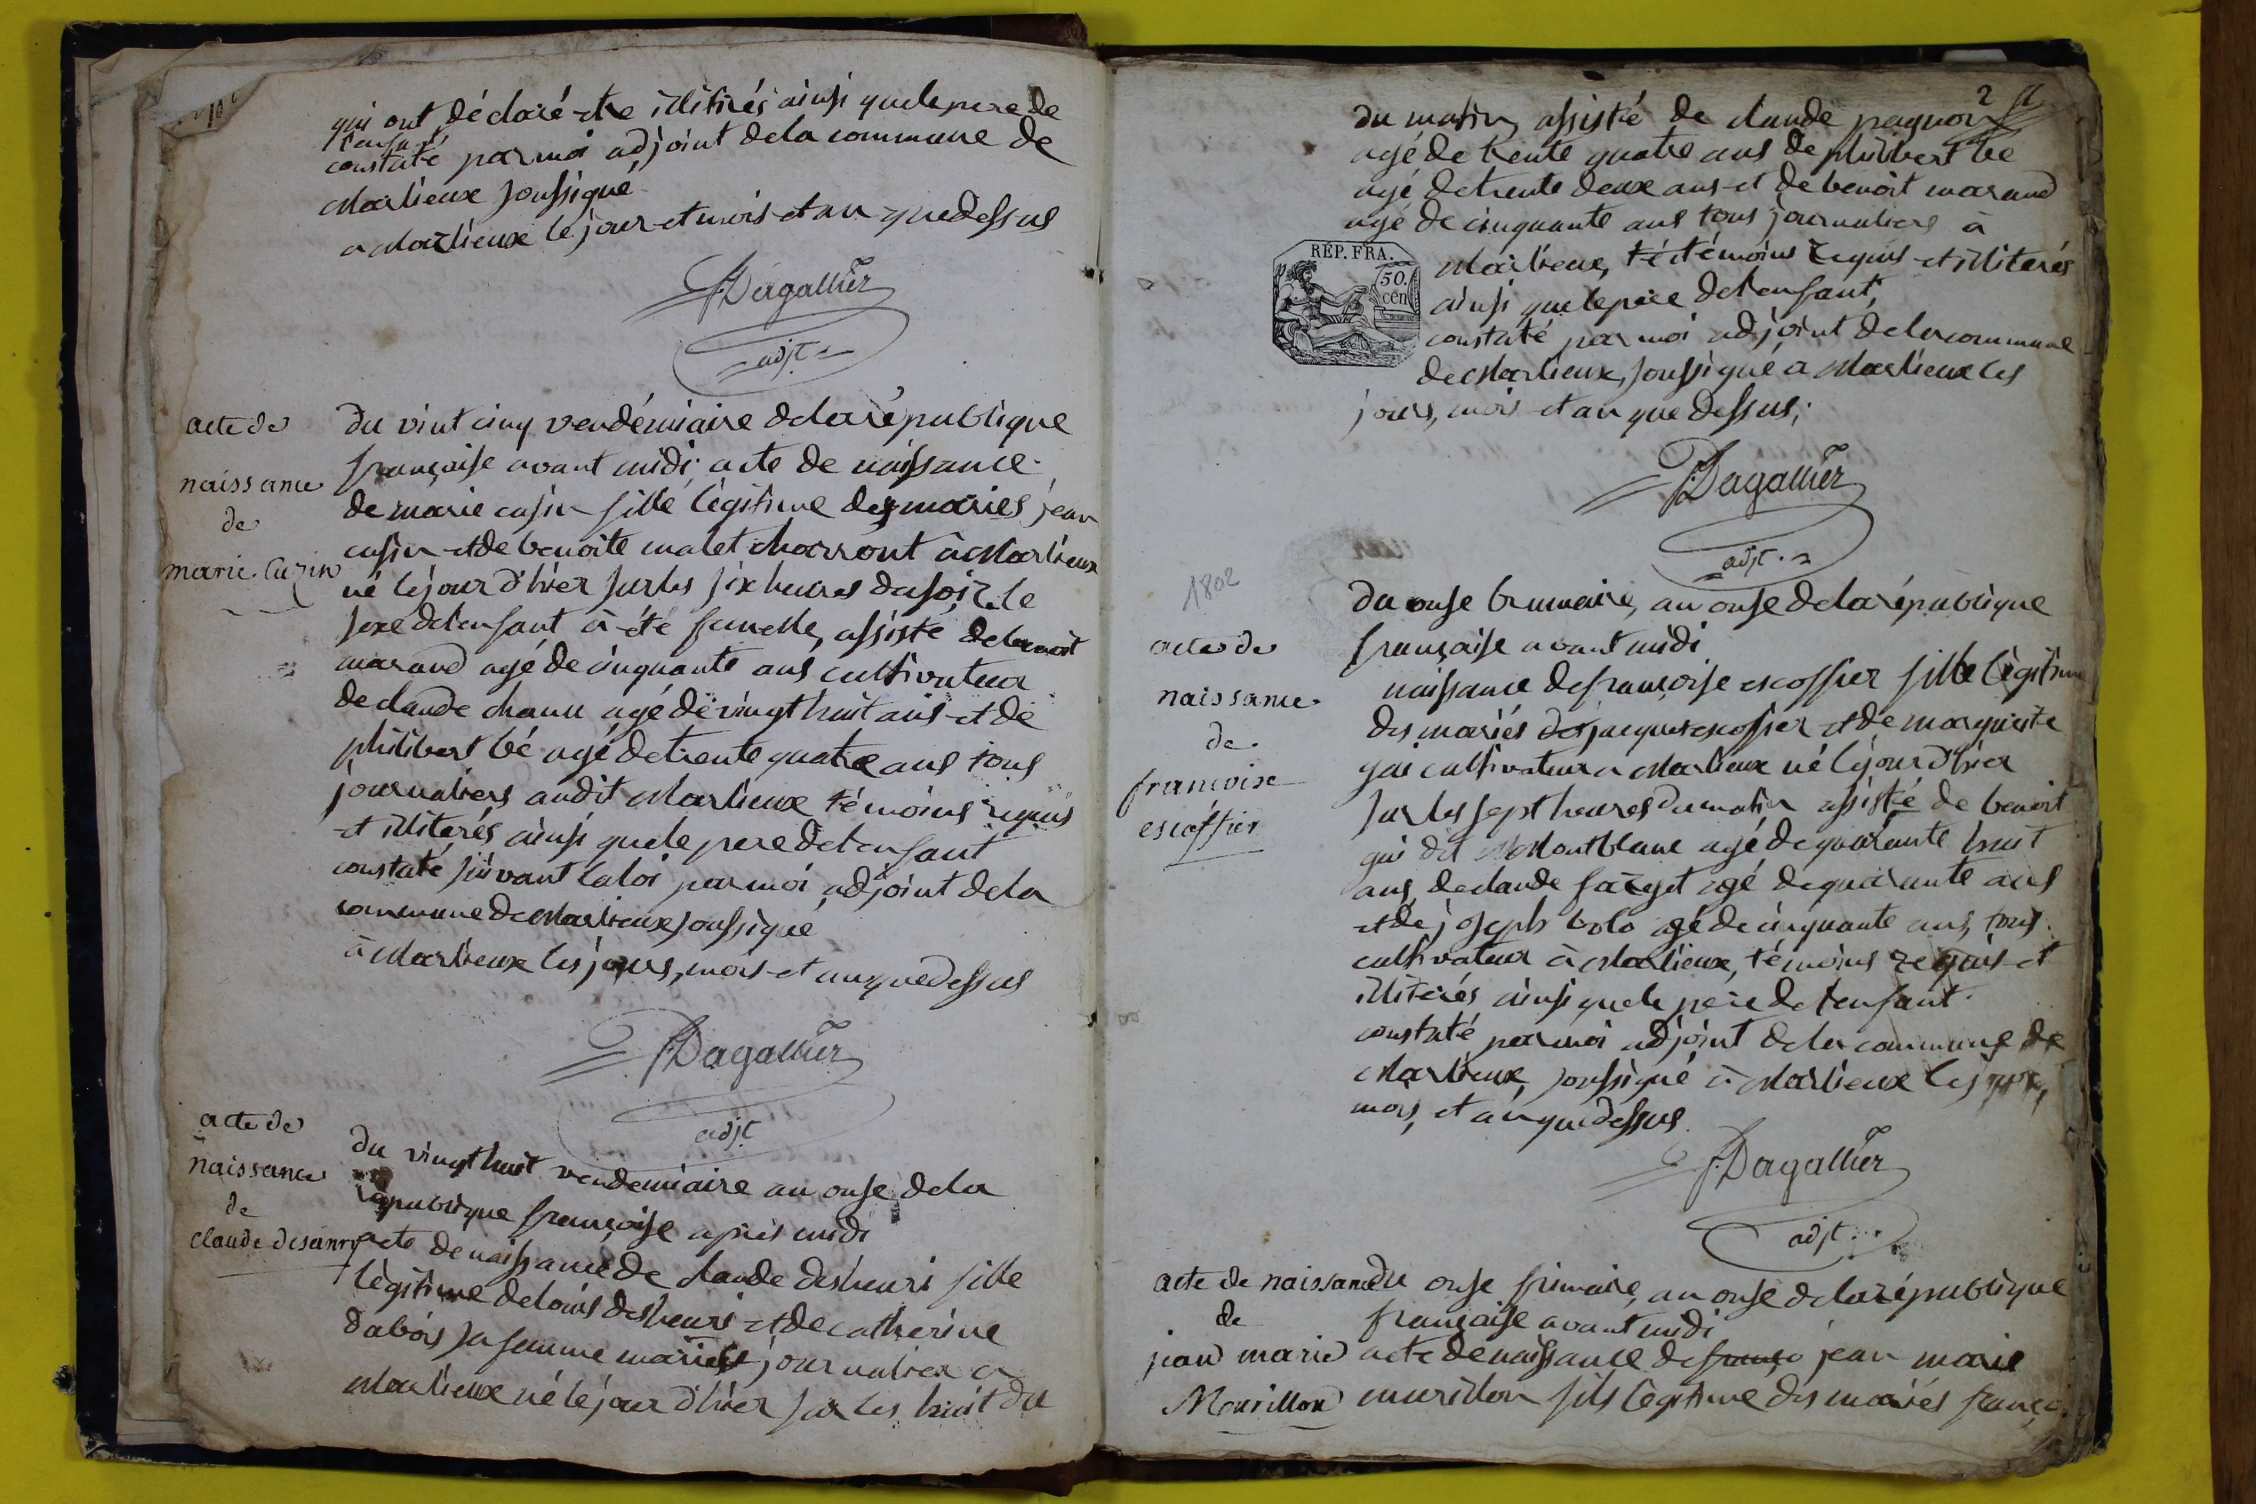 qui ont déclaré etre illitirés ainsi que le pere de
l'enfant
constaté par moi adjoint de la commune de
Marlieux soussigné
a Marlieux le jour et mois et an que dessus
Dagallier
adjt
acte de
naissance
de
marie Cuzin
du vint cinq vendémiaire de la république
française avant midi acte de naissance
de marie cusin fille légitime des mariés jean
cusin et de benoite malet charront à Marlieux
né le jour d'hier sur les six heures du soir le
sexe de l'enfant à été femelle, assisté de benoit
marand agé de cinquante ans cultivateur
de claude chanu agé de vingt huit ans et de
philibert bé agé de trente quatre ans tous
journaliers audit Marlieux témoins requis
et illiterés ainsi que le pere de l'enfant
constaté suivant la loi par moi adjoint de la
commune de Marlieux soussigné
à Marlieux les jours, mois et an que dessus
Dagallier
adjt
acte de
naissance
de
claude desanry
du vingt huit vendemiaire an onse de la
république française après midi
acte de naissance de claude desheuri fille
légitime de louis desheuri et de catherine
dubois sa femme mariés journalier a
Marlieux né le jour d'hier sur les huit du
2
du matin assisté de claude pagnon
agé de trente quatre ans de philibert be
agé de trente deux ans et de benoit marand
agé de cinquante ans tous journaliers à
Marlieux, té témoins requis et illiterés
ainsi que le père de l'enfant,
constaté par moi adjoint de la commune
de Marlieux, soussigné a Marlieux les
jours, mois et an que dessus;
REP. FRA.
50.
cen
Dagallier
adjt
1802
acte de
naissance
de
francoise
escoffier
du onse brumaire, an onse de la république
française avant midi
naissance de françoise escoffier fille légitime
des mariés de jacques escoffier et de marguerite
gai cultivateur a Marlieux né le jour d'hier
sur les sept heures du matin assisté de benoit
gai dit Montblanc agé de quarante huit
ans, de claude farget agé de quarante ans
et de joseph bolo agé de cinquante ans, tous
cultivateur à Marlieux, témoins requis et
illiterés ainsi que le père de l'enfant
constaté par moi adjoint de la commune de
Marlieux, soussigné à Marlieux les jours,
mois, et an que dessus.
Dagallier
adjt
acte de naissance
de
jean marie
Mourillon
du onse frimaire, an onse de la république
française avant midi
acte de naissance de franço jean marie
murillon fils légitime des mariés franço